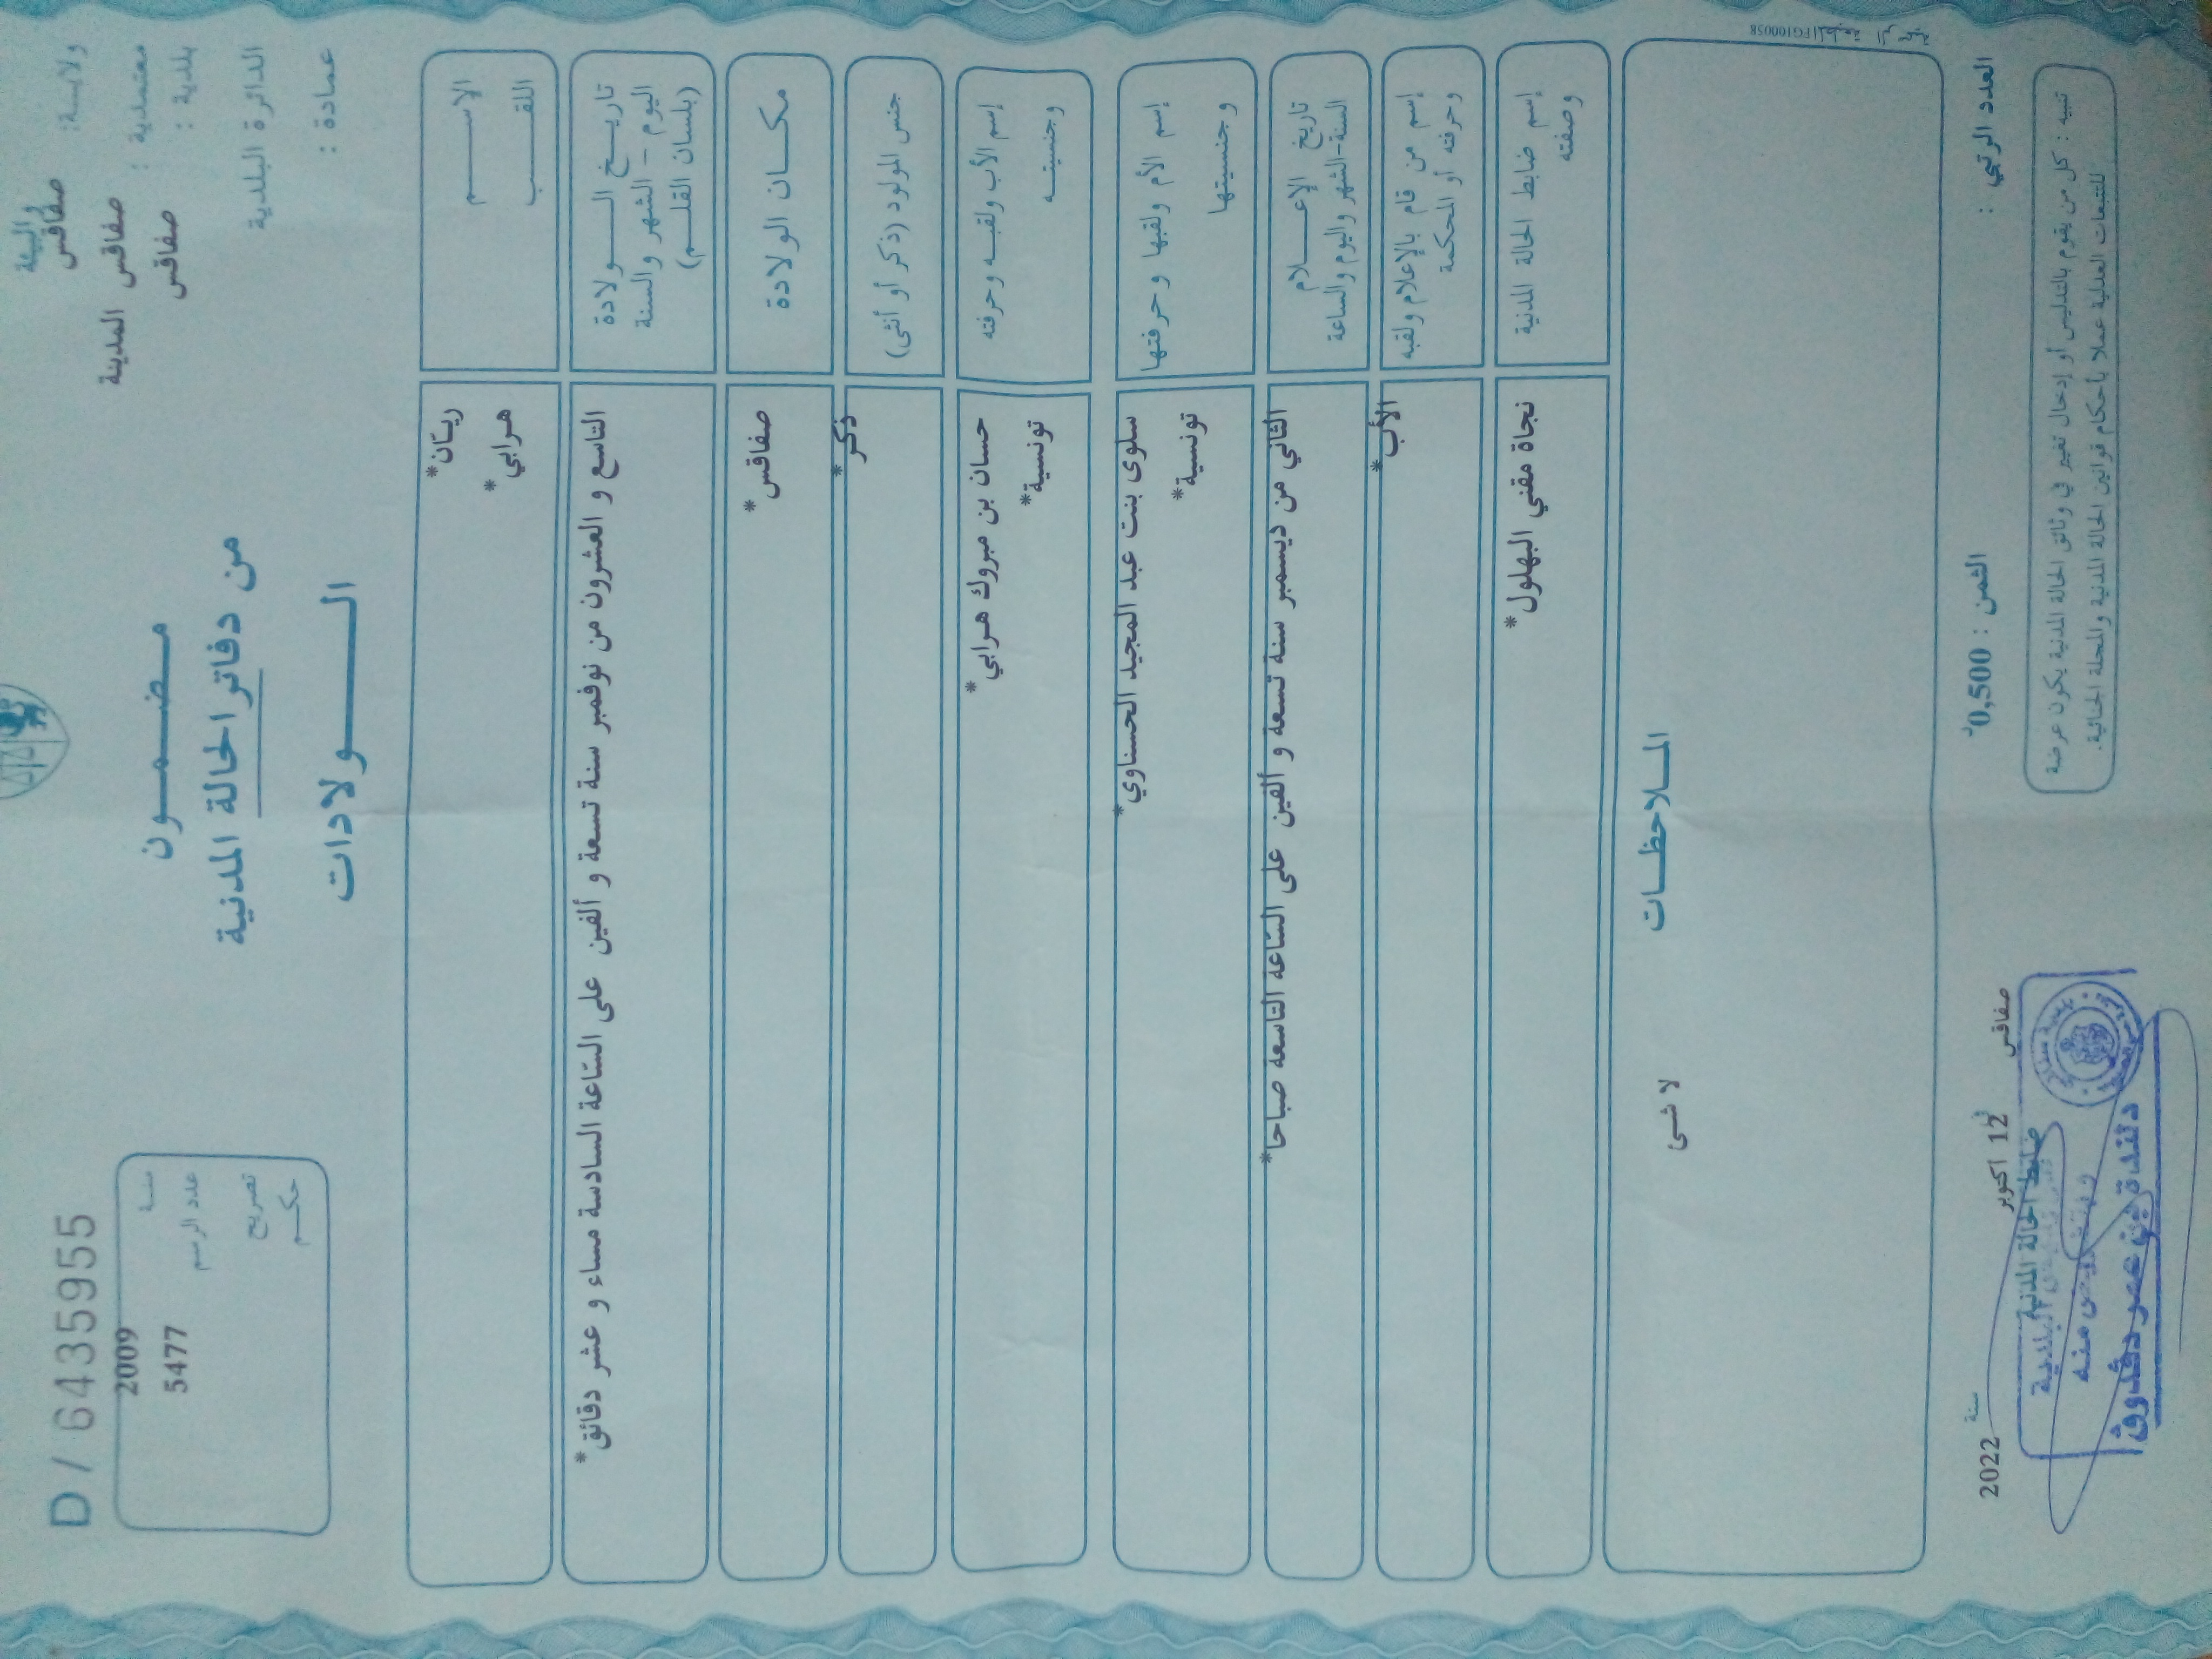 ولايـــة: صفاقس
معتمدية : صفاقس المدينة
بلدية : صفاقس
الدائرة البلدية
عمادة :
D / 6435955
سنـة 2009
عدد الرسم 5477
تصريح
حكـــم
مـضـمــون
من دفاتر الحالة المدنية
الـــولادات
الاســـــم
ريـّان*
اللقـــــب
هـرابي*
تاريــخ الـــــولادة
اليوم - الشهر والسنة
(بلسان القلـــم)
التاسع و العشرون من نوفمبر سنة تسعة و ألفين على السّاعة السادسة مساء و عشر دقائق*
مكــان الولادة
صفاقس*
جنس المولود (ذكر أو أنثى)
ذكـر*
إسم الأب ولقبـه وحرفته
حسان بن مبروك هـرابي*
وجنسيتــه
تونسية*
إسم الأم ولقبها وحرفتها
سلوى بنت عبد المجيد الحسناوي*
وجنسيتها
تونسية*
تاريخ الإعــــلام
السنة-الشهر واليوم والساعة
الثاني من ديسمبر سنة تسعة و ألفين على السّاعة التاسعة صباحا*
إسم من قام بالإعلام ولقبه
وحرفته أو المحكمة
الأب*
إسم ضابط الحالة المدنية
وصفته
نجاة مقني البهلول*
المـلاحظــات
لا شئ
العدد الرتبي :
الثمن : 0,500د
صفاقس في 12 اكتوبر سنة 2022
ضابط الحالة المدنية
دلندة بن عمر دقدوق
تنبيه : كل من يقوم بالتدليس أو إدخال تغيير في وثائق الحالة المدنية يكون عرضة
للتتبعات العدلية عملا بأحكام قوانين الحالة المدنية والمجلة الجنائية.